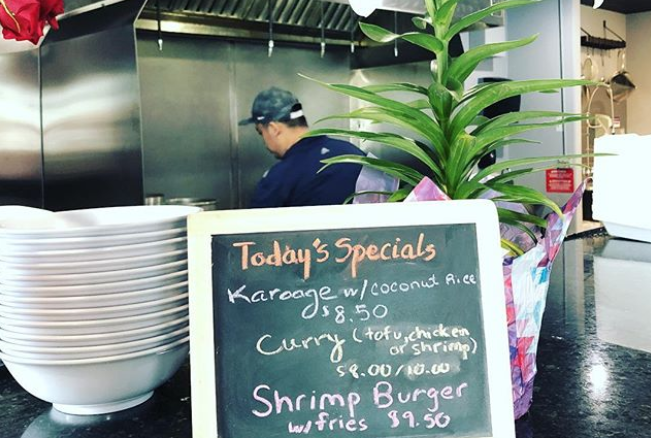 Today's Specials
Karaage w/coconut Rice
$8.50
Curry (tofu, chicken
or shrimp)
$8.00/10.00
Shrimp Burger
w/fries $9.50